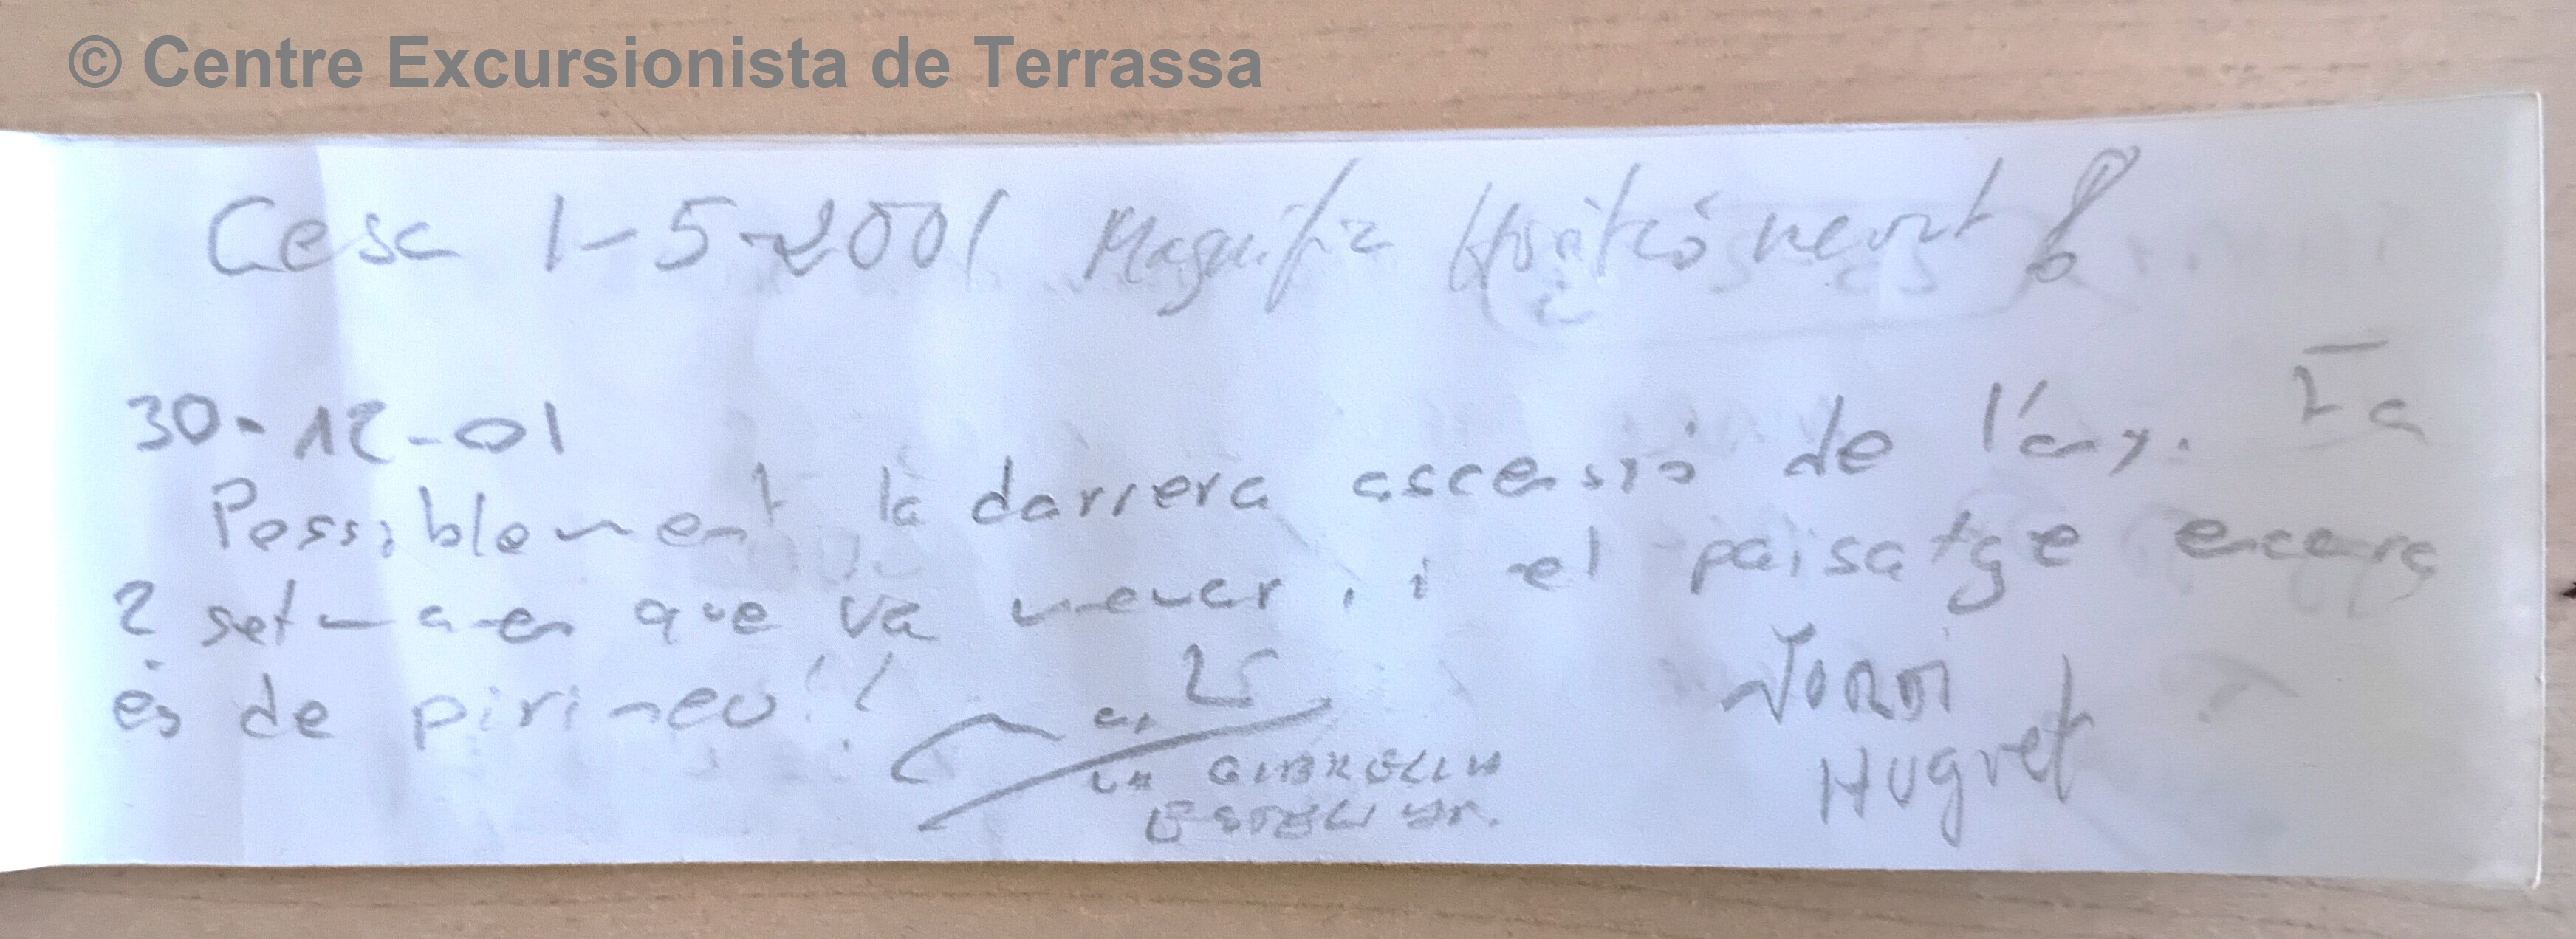 © Centre Excursionista de Terrassa
Cesc 1-5-2001 Magnífic
30-12-01
Possiblement la darrera ascensió de l'any. Fa
2 setmanes que va nevar, i el paisatge encara
és de pirineu!!
JORDI
Huguet